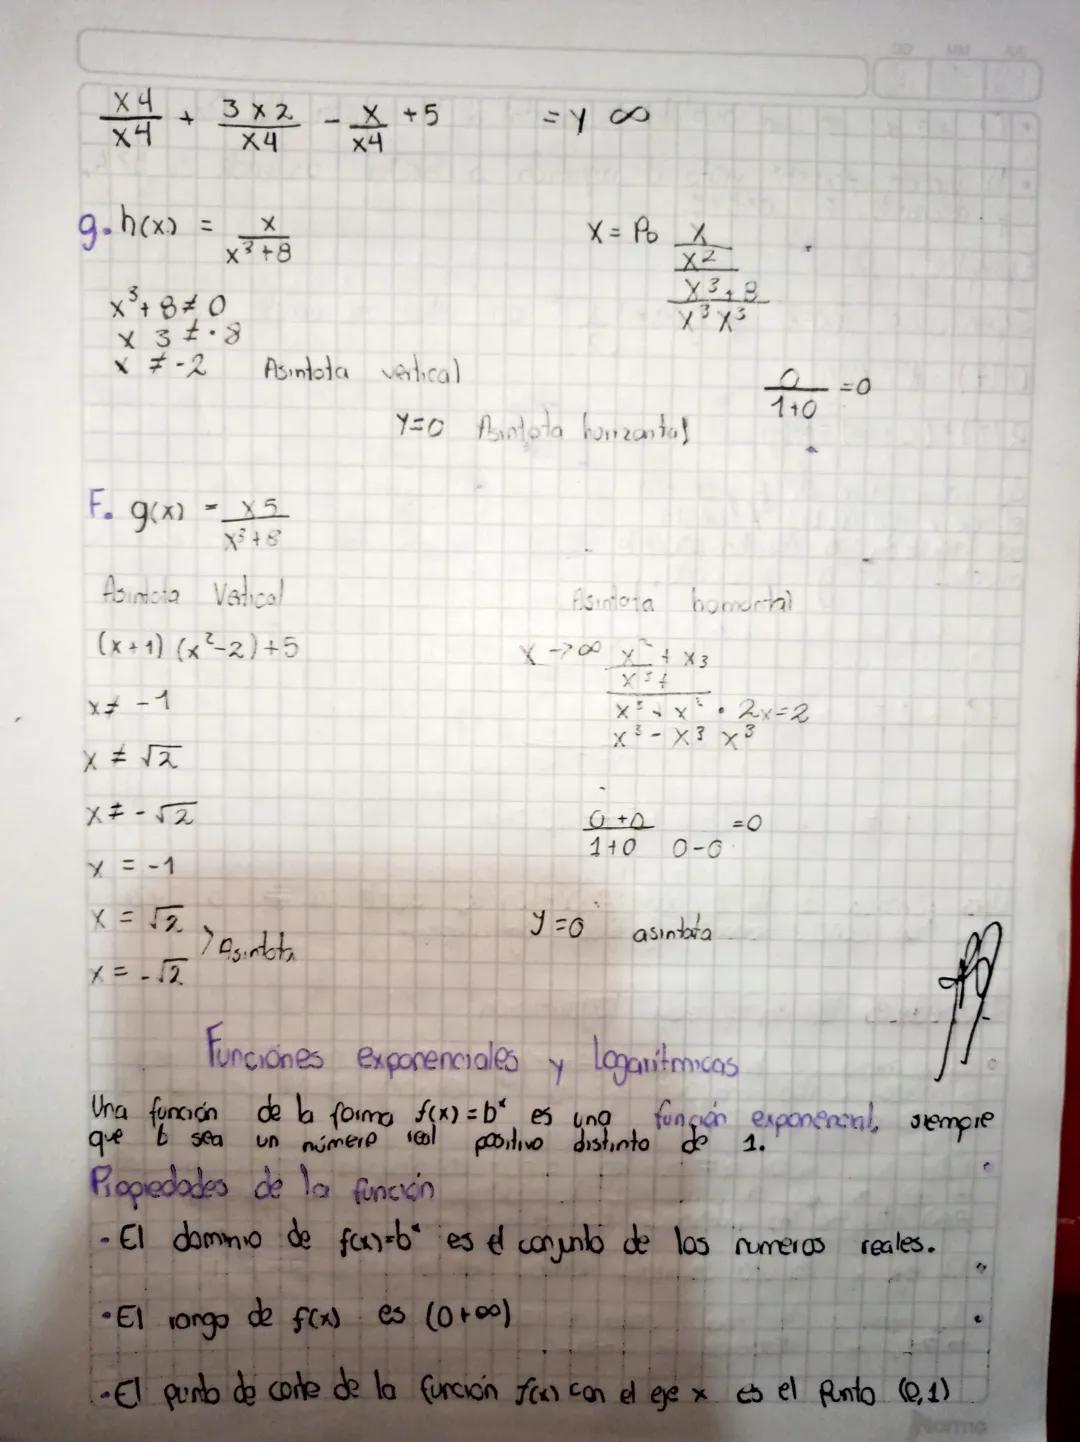 x4/x4 + 3x2/x4 - x/x4 + 5 = y ∞
g. h(x) = x/x³+8
x = Po x/x²
x³+8/x³ x³
x³+8≠0
x 3 ≠ -8
x ≠ -2 Asintota vertical
0/1+0 =0
Y=0 Asintota horizontal
F. g(x) = x5/x³+8
Asintota Vertical
Asintota
(x+1) (x²-2)+5
x→∞ x² + x3
x³+
x≠ -1
x³ + x² · 2x=2
x³ - x3 x³
x ≠ √2
x≠ -√2
0+0/1+0 0-0 =0
x = -1
x = √2
> Asintota
x = -√2
y=0 asintota
Funciones exponenciales y Logarítmicas
Una función de la forma f(x) = bˣ es una función exponencial, siempre
que b sea un número real positivo distinto de 1.
Propiedades de la función
- El dominio de f(x)=bˣ es el conjunto de los números reales.
• El rango de f(x) es (0+∞)
• El punto de corte de la función f(x) con el eje x es el Punto (0,1)
Norma